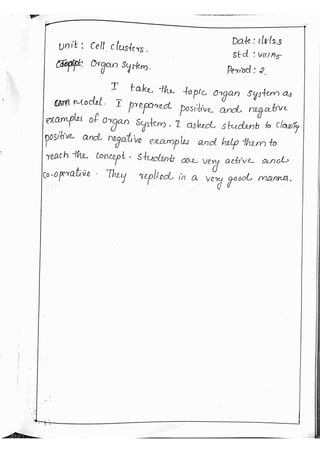 Date : 1/8/23
Unit : Cell Clusters.
Std : VIII A5
Organ System.
Period : 2.
I take the topic Organ System as
model. I prepared positive and negative
examples of Organ System. I asked students to classify
positive and negative examples and help them to
reach the concept. Students are very active and
co-operative. They replied in a very good manner.